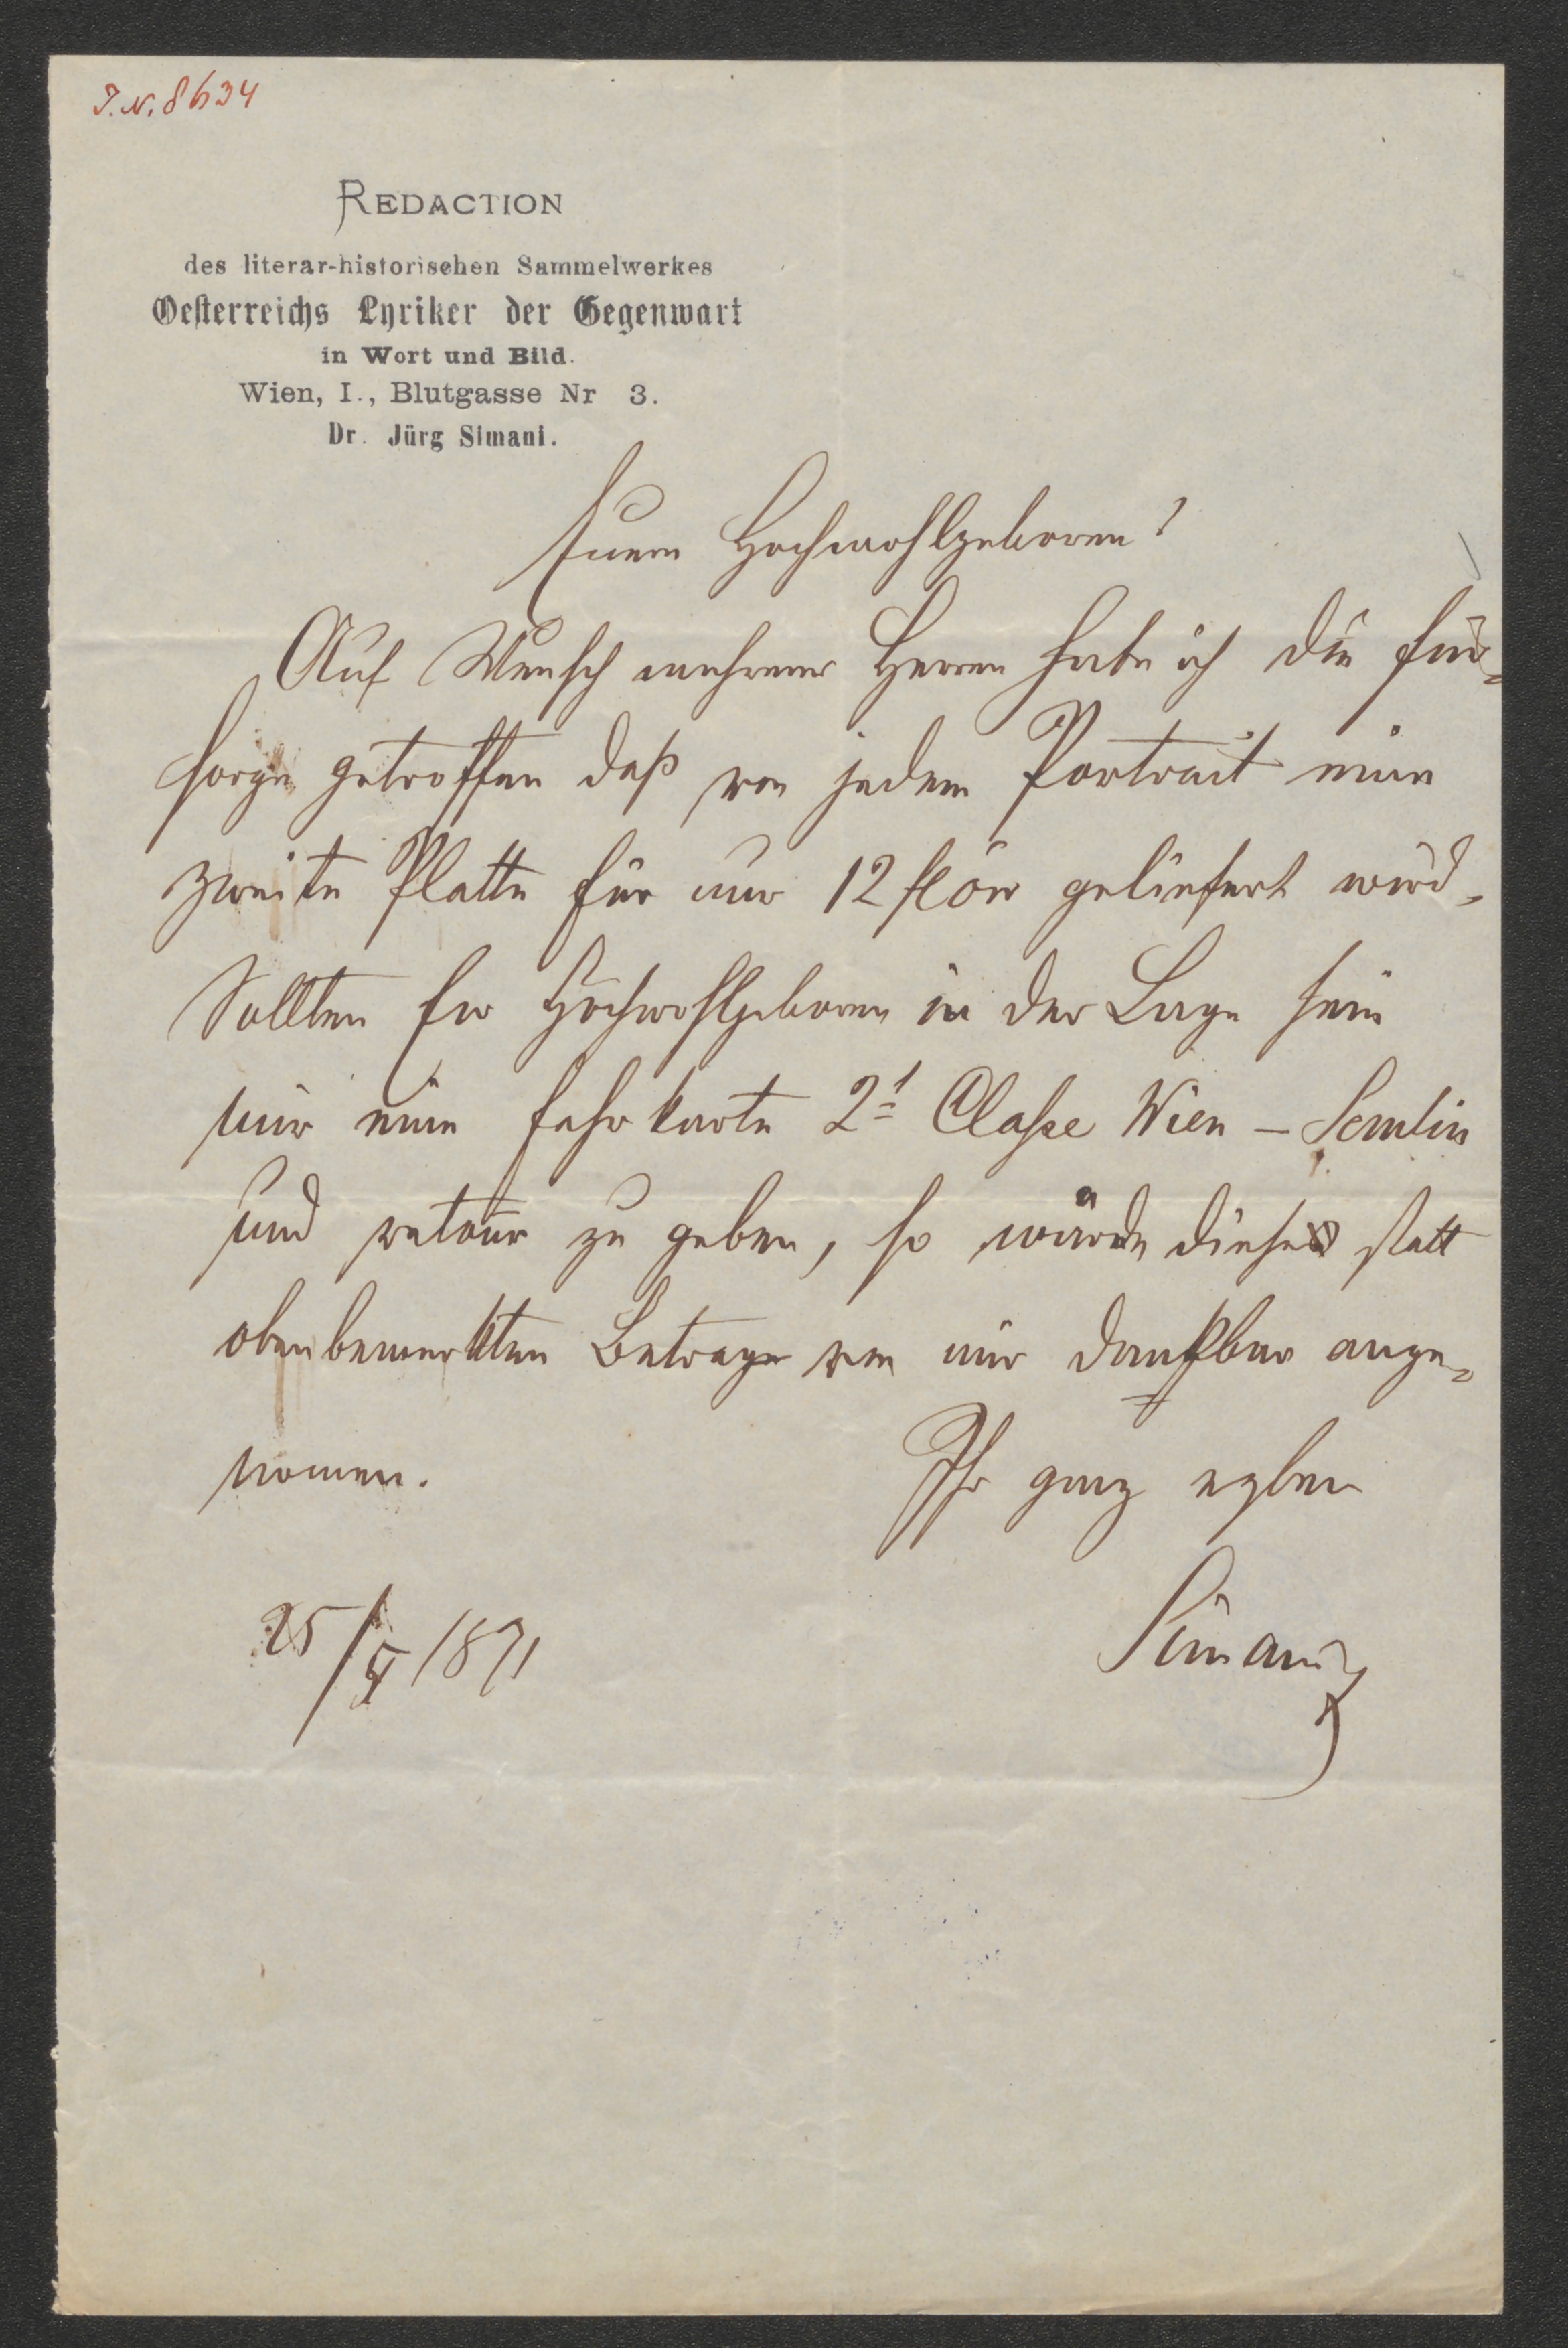 I.N. 8634
REDACTION
des literar-historischen Sammelwerkes
Oesterreichs Lyriker der Gegenwart
in Wort und Bild.
Wien, I., Blutgasse Nr 3.
Dr. Jürg Simani.
Euer Hochwohlgeboren!
Auf Wunsch mehrerer Herren habe ich die Für-
sorge getroffen daß von jedem Portrait eine
zweite Platte für nur 12 fl öw geliefert wird,
Sollten Ew Hochwohlgeboren in der Lage sein
mir eine Fahrkarte 2t Classe Wien – Semlin
und retour zu geben, so würde diese statt
obenbemerkten Betrage von mir dankbar ange-
nomen.
Ihr ganz ergben
Simani
25/5 1891